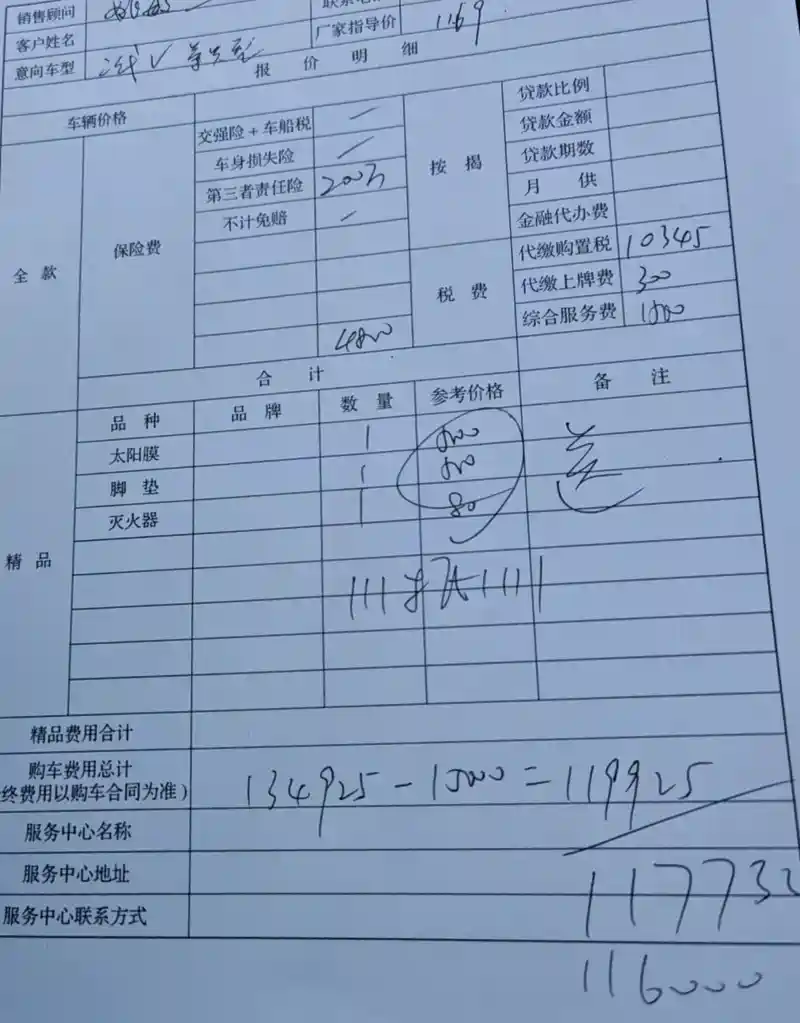 销售顾问
客户姓名
厂家指导价 1169
意向车型
报价明细
车辆价格
全款
保险费
交强险+车船税 —
车身损失险 —
第三者责任险 200万
不计免赔 —
4800
按揭
贷款比例
贷款金额
贷款期数
月供
金融代办费
税费
代缴购置税 10345
代缴上牌费 300
综合服务费 1500
合计
精品
品种 品牌 数量 参考价格 备注
太阳膜 1 500
脚垫 1 500 送
灭火器 1 80
精品费用合计
购车费用总计
终费用以购车合同为准) 134925-15000=119925
服务中心名称
服务中心地址
服务中心联系方式
11773
116000